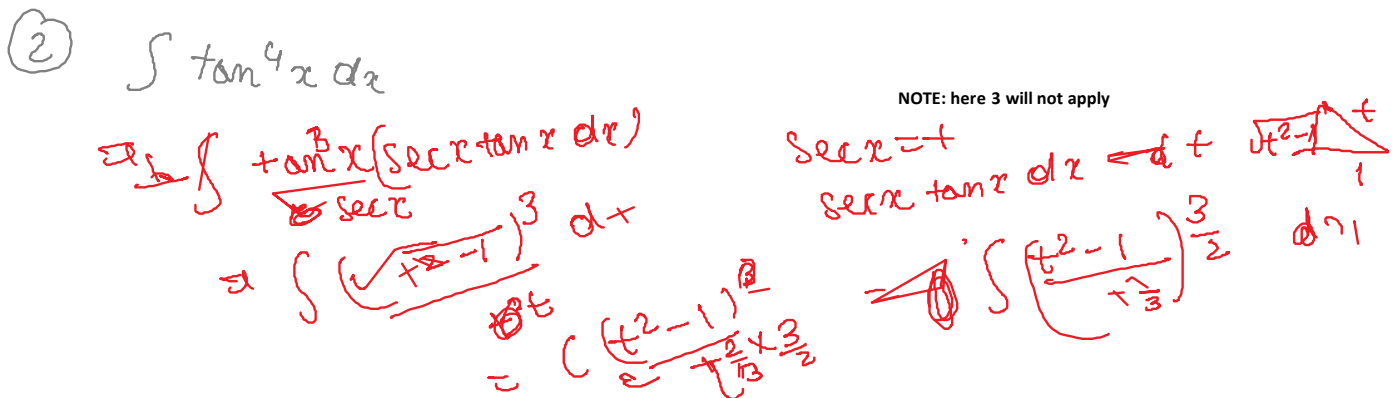 ② ∫ tan⁴x dx
NOTE: here 3 will not apply
= ∫ tan³x (sec x tan x dx) / sec x
sec x = t
sec x tan x dx = dt
√t²-1 t 1
= ∫ (√t²-1)³ / t dt
= ( (t²-1)^3 / t^(2/3 × 3/2)
= ∫ ( t²-1 / t^(2/3) )^(3/2)